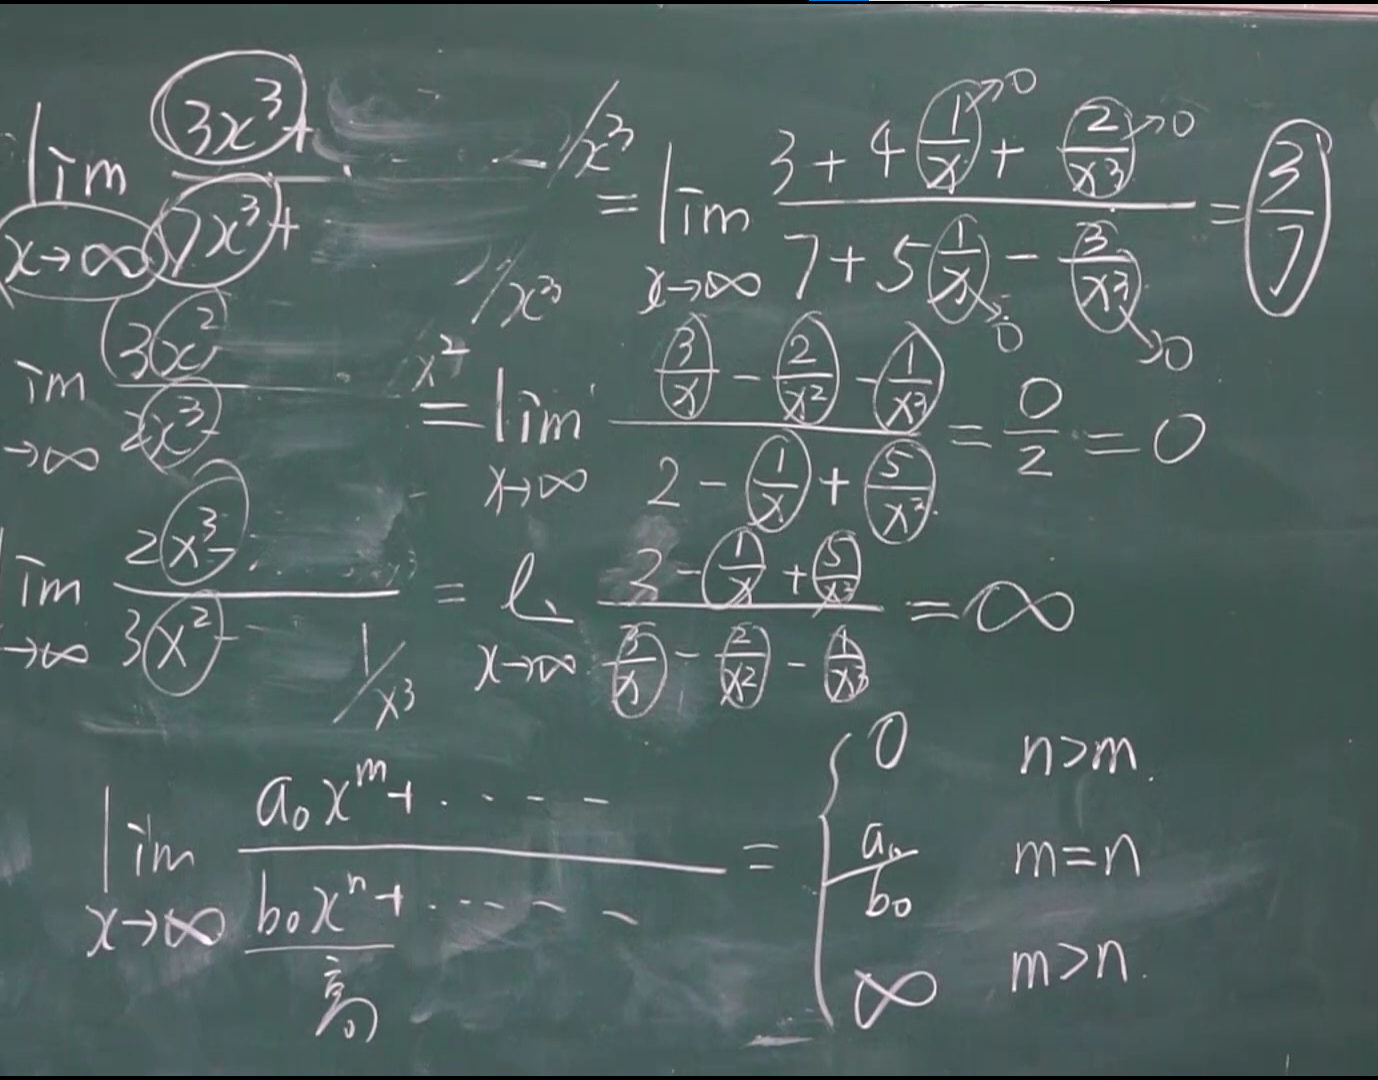 lim x→∞ (3x³+ ...)/(7x³+ ...) /x³ /x³ = lim x→∞ (3 + 4 1/x + 2/x³)/(7 + 5 1/x − 3/x³) = 3/7 →0 →0 →0 →0
im →∞ 3x²/2x³ x² = lim x→∞ (3/x − 2/x² − 1/x³)/(2 − 1/x + 5/x³) = 0/2 = 0
im →∞ (2x³− ...)/(3x²−) 1/x³ = l x→∞ (2 − 1/x + 5/x³)/(3/x − 2/x² − 1/x³) = ∞
lim x→∞ (a₀xᵐ+ ....)/(b₀xⁿ+ ....) = { 0 n>m.
a₀/b₀ m=n
∞ m>n.
高